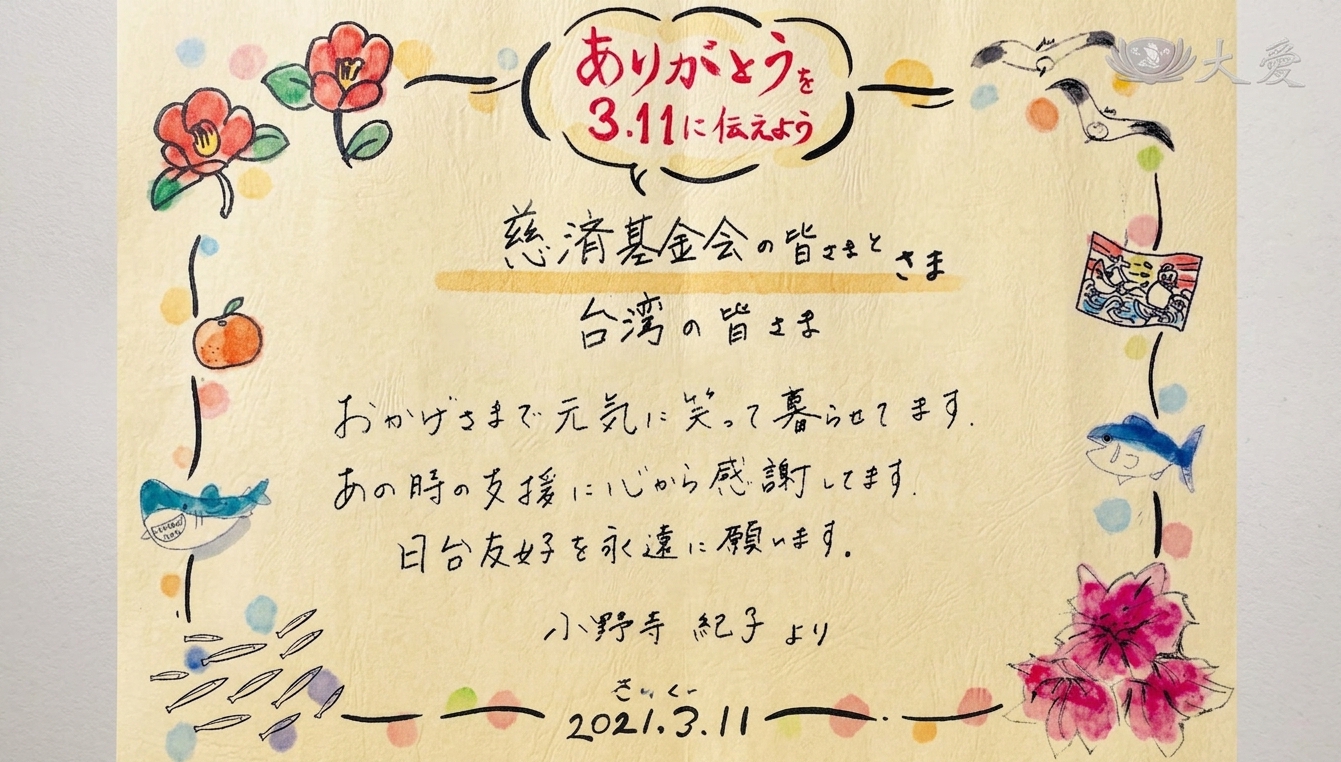 大愛
ありがとうを
3.11に伝えよう
慈済基金会の皆さまと
さま
台湾の皆さま
おかげさまで元気に笑って暮らせてます.
あの時の支援に心から感謝してます.
日台友好を永遠に願います.
小野寺 紀子 より
2021.3.11